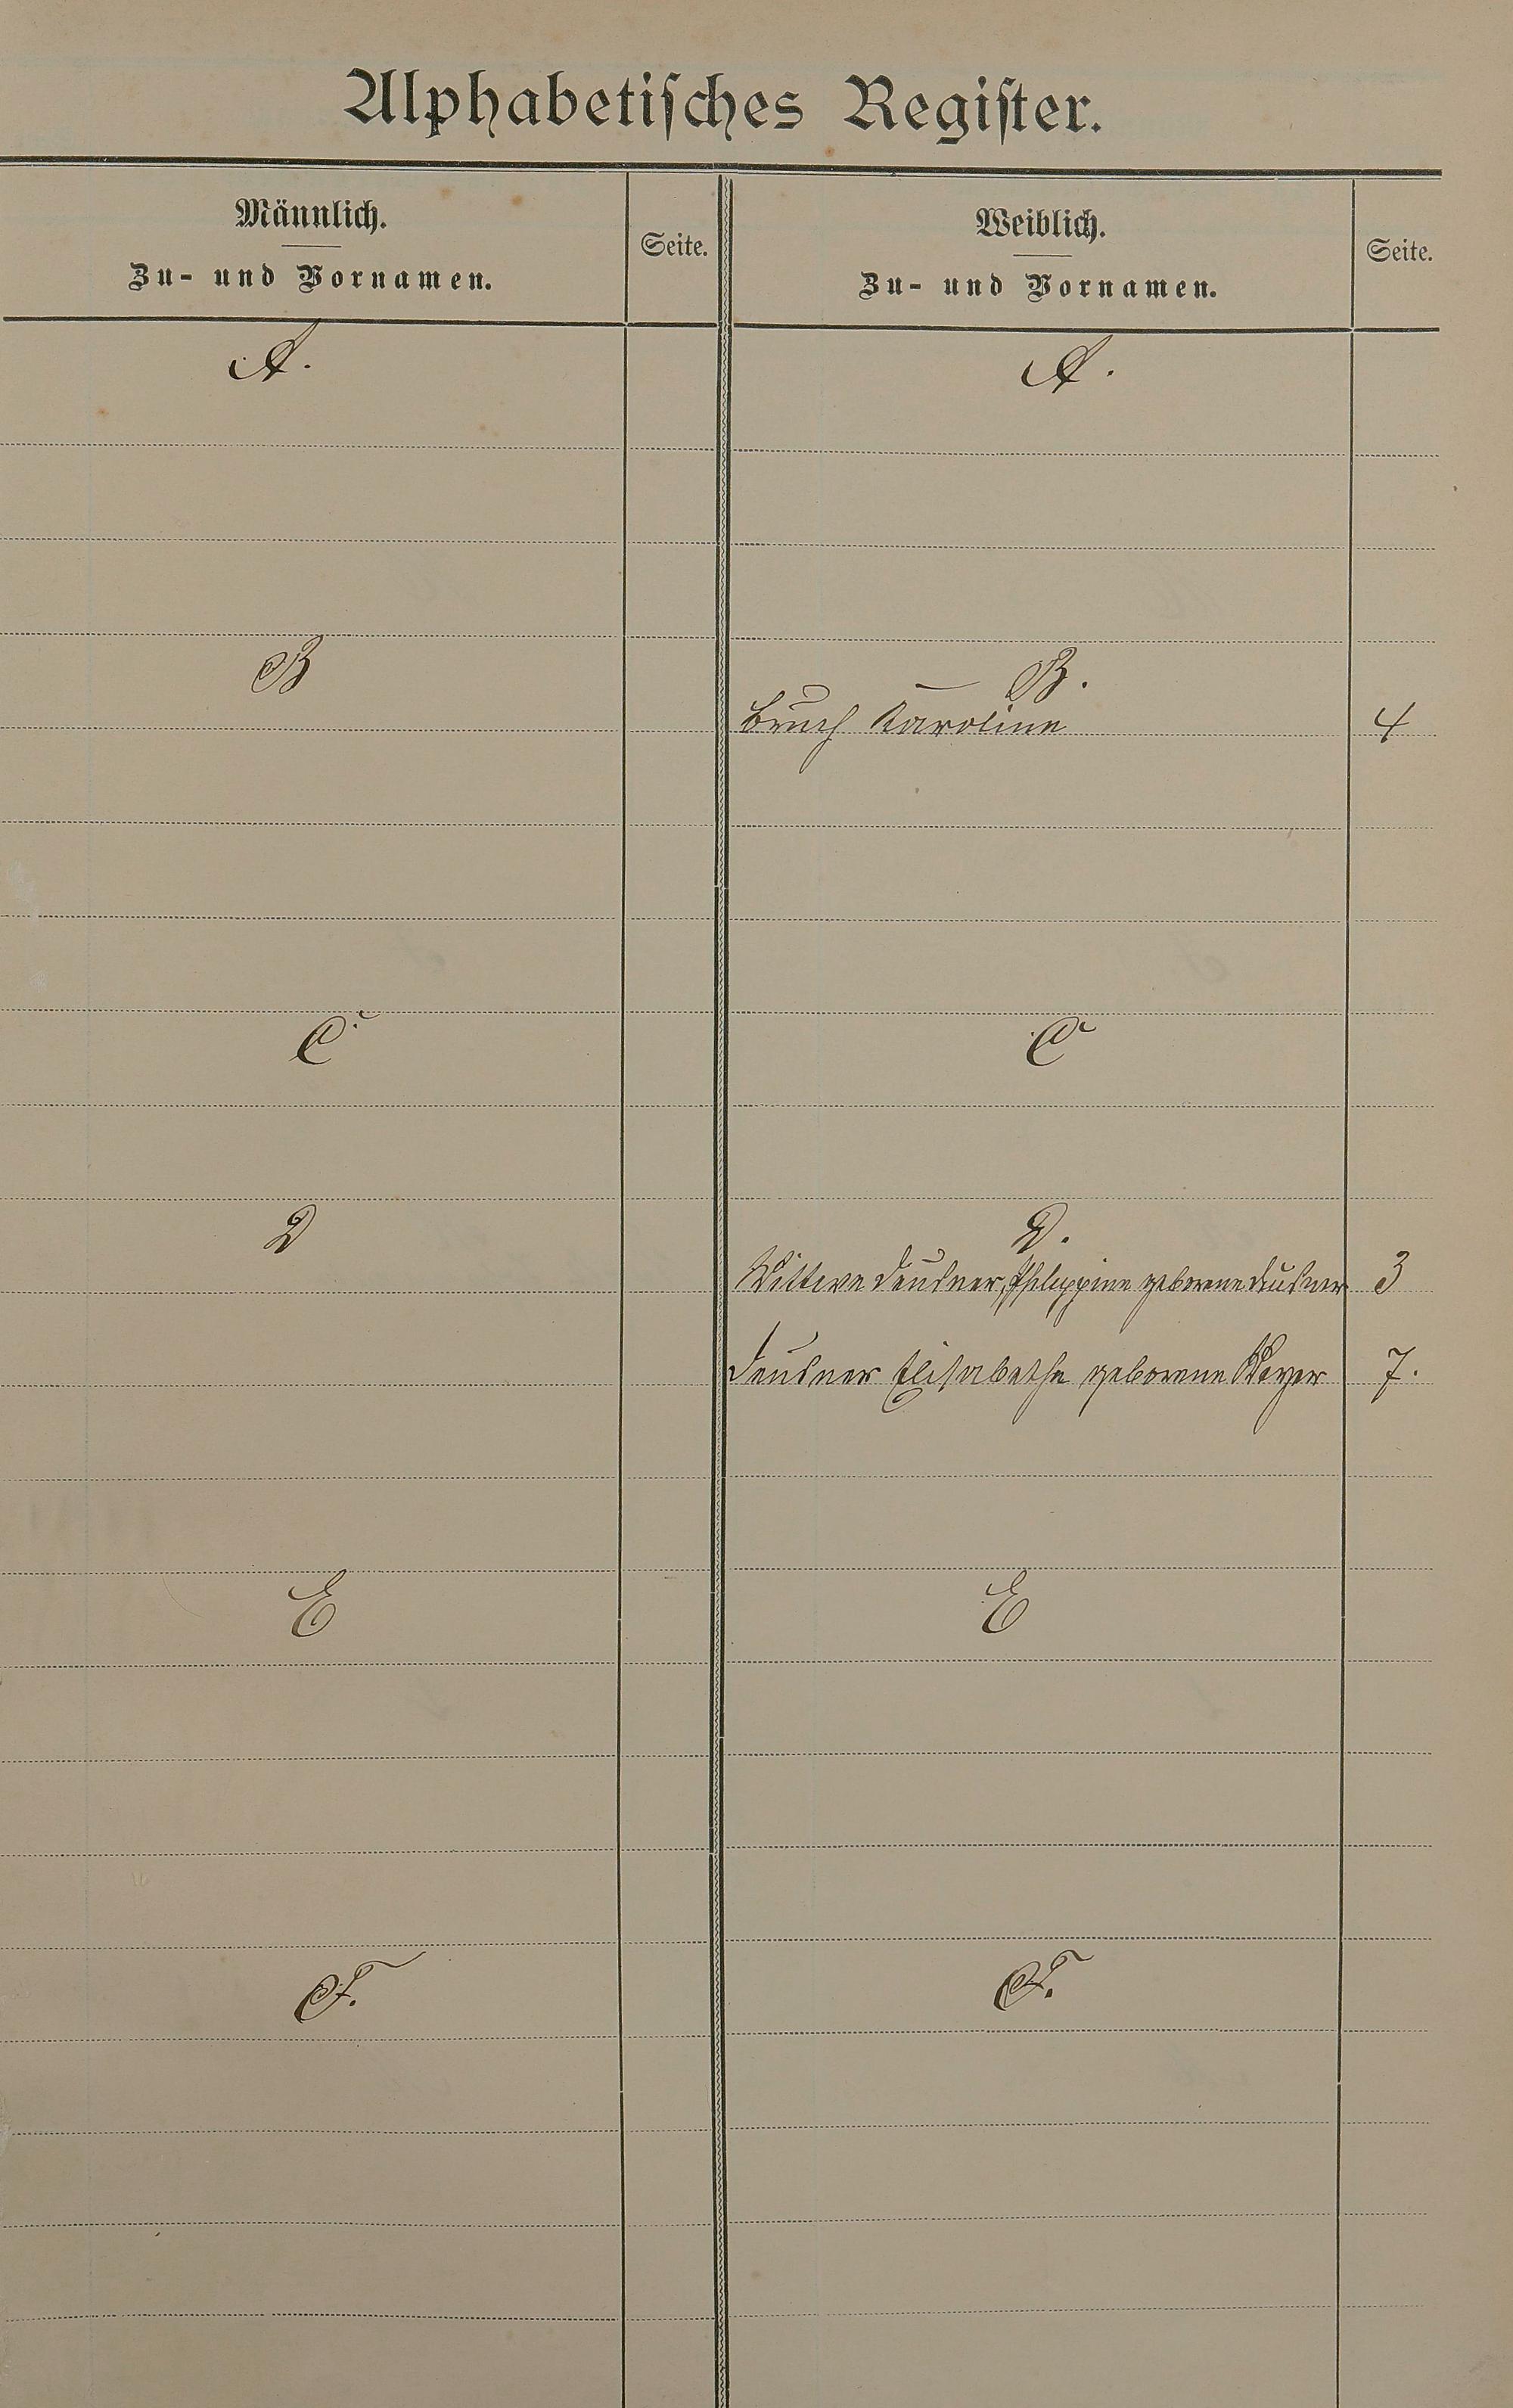 Alphabetisches Register.
Männlich.
Zu- und Vornamen.
Seite.
Weiblich.
Zu- und Vornamen.
Seite.
A.
A.
B
B.
Bruch Karoline 4
C
C
D
D.
Wittwe Deubner, Philippine geborene Deubner 3
Deubner Elisabetha geborene Weyer 7.
E
E
F.
F.